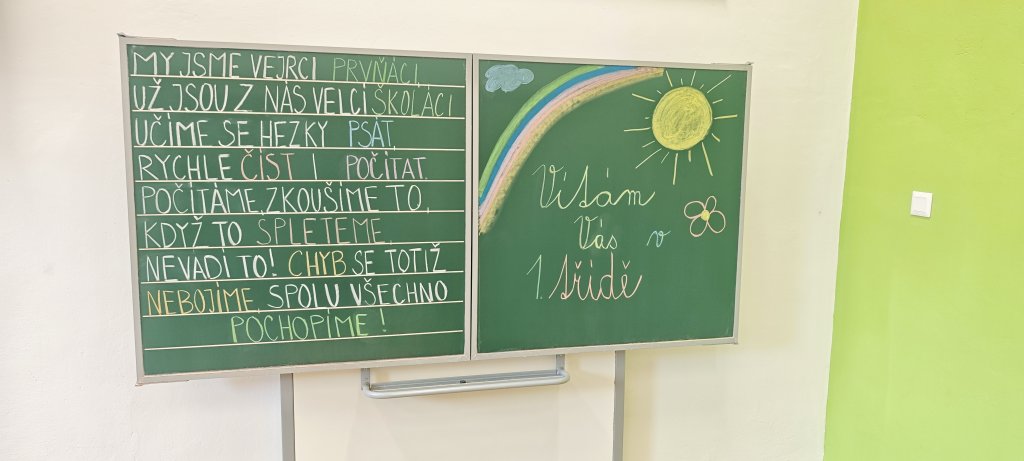 MY JSME VEJRCI PRVŇÁCI,
UŽ JSOU Z NÁS VELCÍ ŠKOLÁCI
UČÍME SE HEZKY PSÁT,
RYCHLE ČÍST I POČÍTAT.
POČÍTÁME, ZKOUŠÍME TO,
KDYŽ TO SPLETEME,
NEVADÍ TO! CHYB SE TOTIŽ
NEBOJÍME, SPOLU VŠECHNO
POCHOPÍME!
Vítám
Vás v
1. třídě